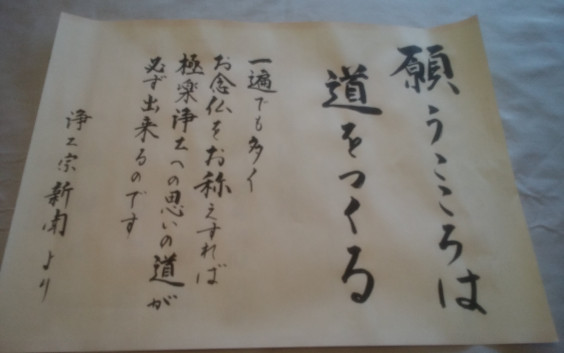 願うこころは
道をつくる
一遍でも多く
お念仏をお称えすれば
極楽浄土への思いの道が
必ず出来るのです
浄土宗新聞より